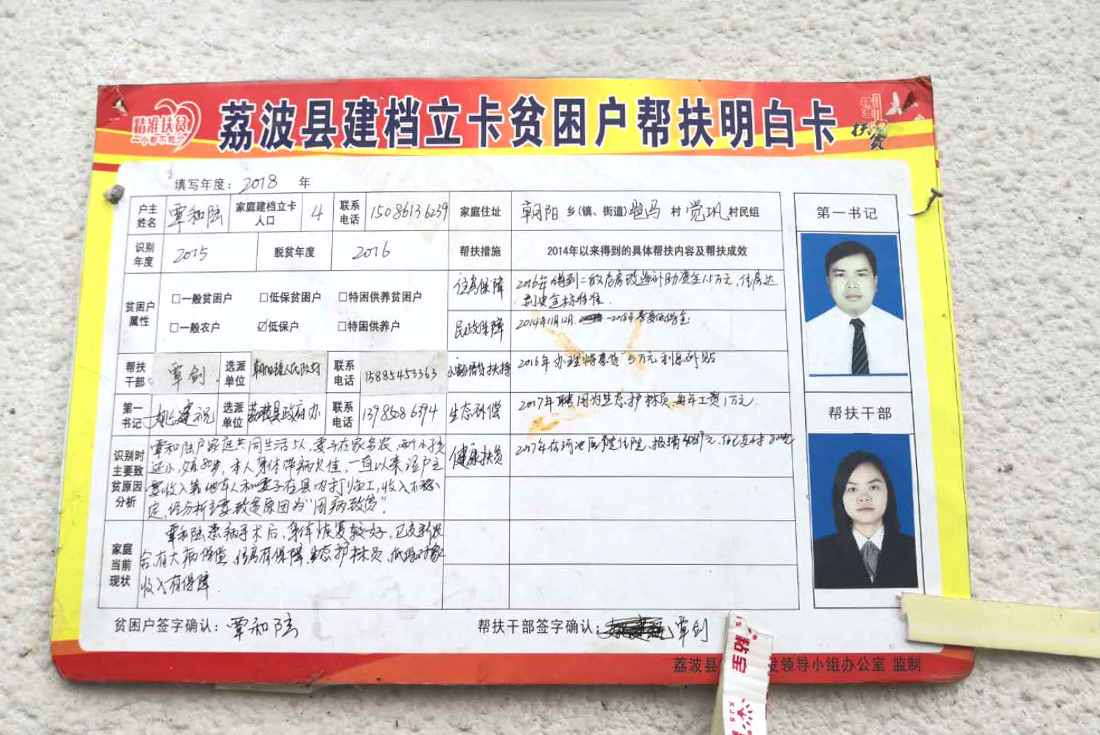 精准扶贫
荔波县建档立卡贫困户帮扶明白卡
扶贫
填写年度：2018 年
户主姓名 覃和陆 家庭建档立卡人口 4 联系电话 15086136239 家庭住址 朝阳 乡(镇、街道) 村 村民组
第一书记
识别年度 2015 脱贫年度 2016 帮扶措施 2014年以来得到的具体帮扶内容及帮扶成效
贫困户属性 □一般贫困户 □低保贫困户 □特困供养贫困户
□一般农户 ☑低保户 □特困供养户
住房保障 2016年得到二级危房改造补助资金1.5万元，住房达
到安全标准
民政保障 2014年11月12月
帮扶干部 覃剑 选派单位 朝阳镇人民政府 联系电话 15885453363
2016年办理特惠贷5万元利息补贴
第一书记 选派单位 荔波县政府办 联系电话 生态补偿 2017年聘用为生态护林员，每年工资1万元
帮扶干部
识别时主要致贫原因分析
覃和陆户家庭共同生活5人，妻子在家务农，两个小孩
还小，本人身体带病欠佳，一直以来该户主
要收入靠本人和妻子在县内打临工，收入不稳
定，经分析主要致贫原因为“因病致贫”
健康扶贫
家庭当前现状
覃和陆患病手术后，身体恢复较好，已参加农
合有大病保险，住房有保障，生态护林员，低保对象
收入有保障
贫困户签字确认：覃和陆 帮扶干部签字确认： 覃剑
荔波县 发领导小组办公室 监制